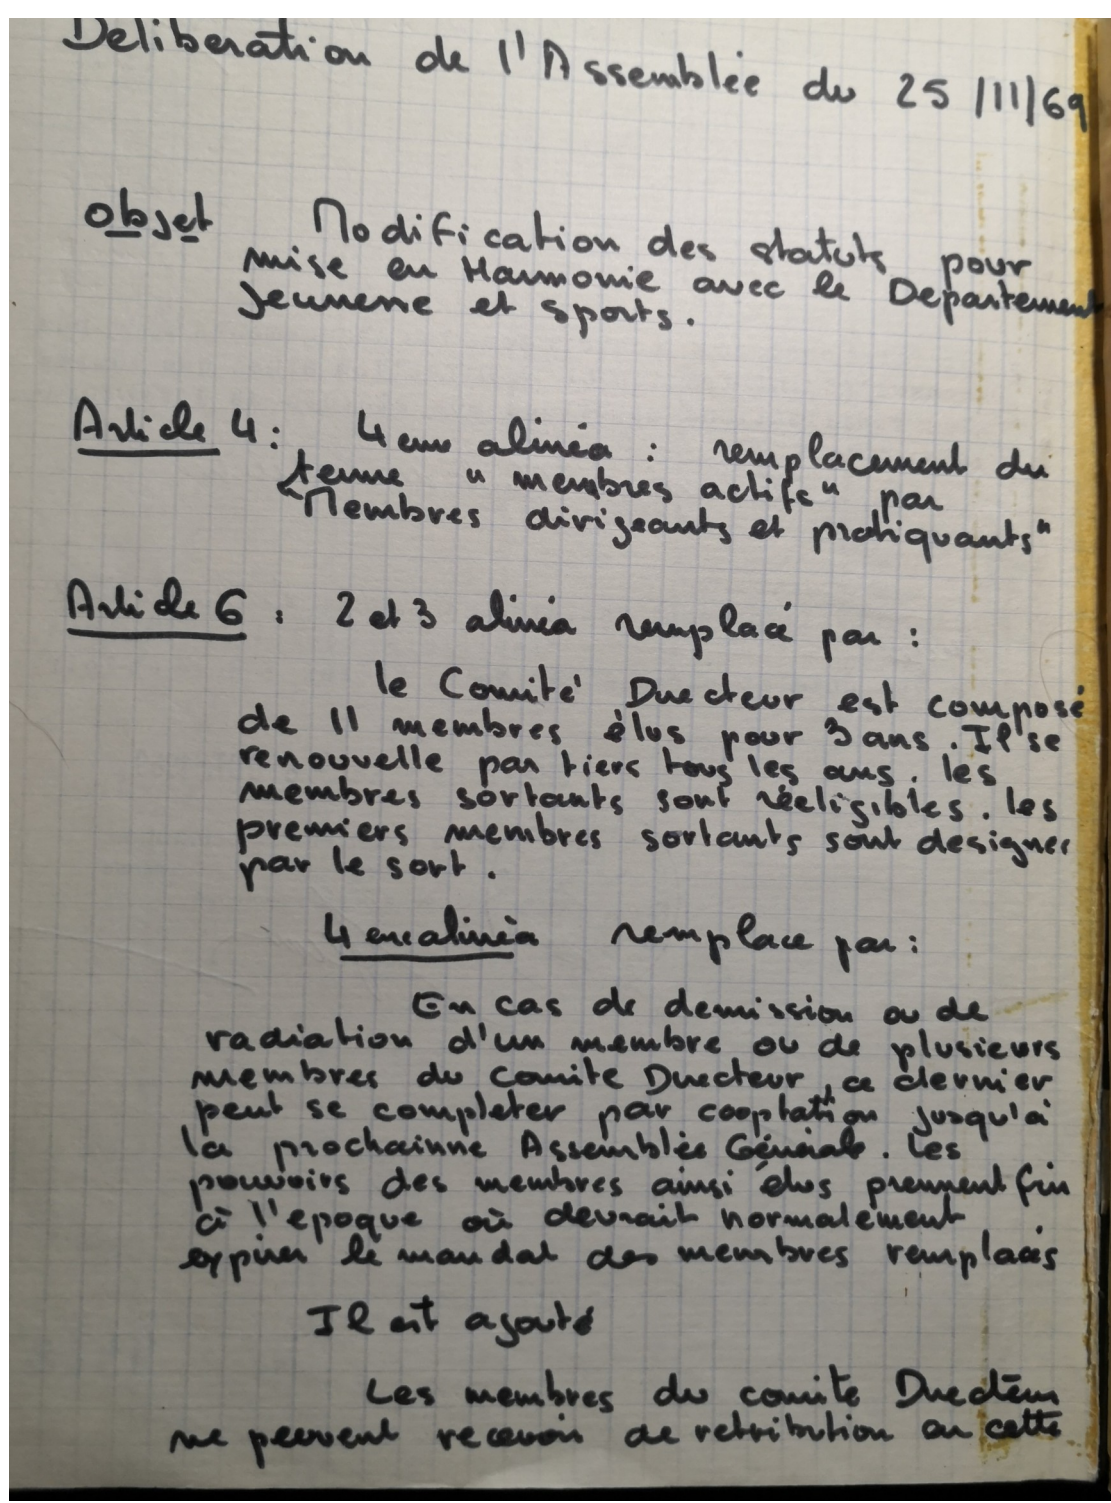 Deliberation de l'Assemblée du 25/11/69
objet Modification des statuts pour
mise en Harmonie avec le Departement
Jeunesse et sports.
Article 4 : 4eme alinéa : remplacement du
terme "membres actifs" par
"Membres dirigeants et pratiquants"
Article 6 : 2 et 3 alinéa remplacé par :
le Comité Directeur est composé
de 11 membres élus pour 3 ans. Il se
renouvelle par tiers tous les ans. les
membres sortants sont rééligibles. les
premiers membres sortants sont designer
par le sort.
4eme alinéa remplace par :
En cas de demission ou de
radiation d'un membre ou de plusieurs
membres du comite Directeur, ce dernier
peut se completer par cooptation jusqu'à
la prochainne Assemblée Générale. Les
pouvoirs des membres ainsi élus prennent fin
à l'epoque où devrait normalement
expirer le mandat des membres remplacés
Il est ajouté
Les membres du comite Directeur
ne peuvent recevoir de retribution en cette